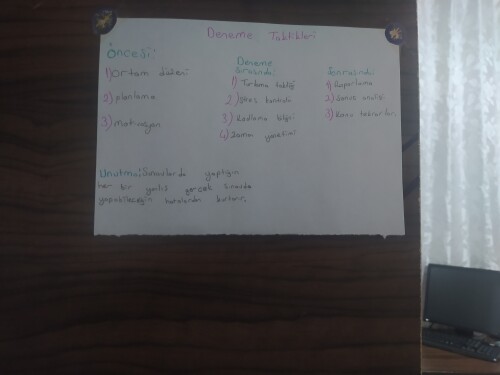 Deneme Taktikleri
Öncesi:
1) Ortam düzeni
2) planlama
3) motivasyon
Deneme
Sırasında:
1) Turlama tekniği
2) Stres kontrolü
3) Kodlama bilgisi
4) Zaman yönetimi
Sonrasında:
1) Raporlama
2) Sonuç analizi
3) Konu tekrarları
Unutma: Sınavlarda yaptığın
her bir yanlış gerçek sınavda
yapabileceğin hatalardan kurtarır.